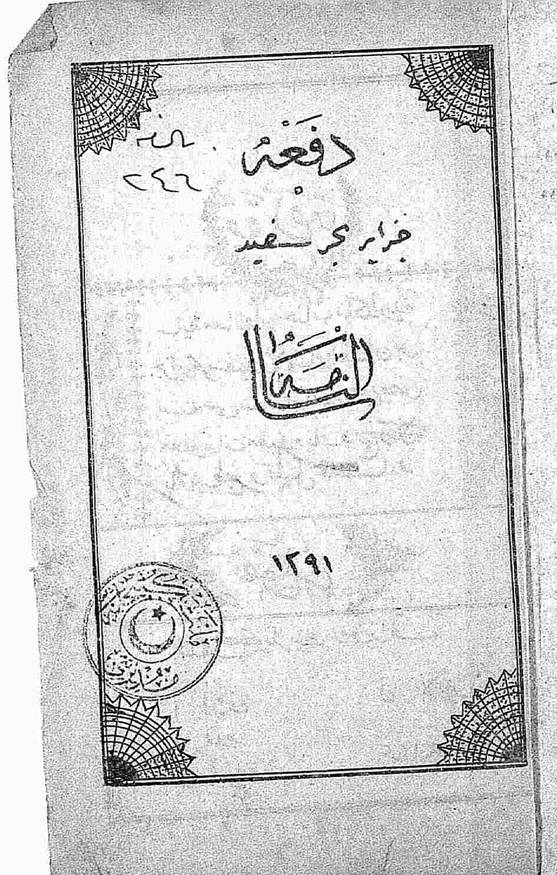 دفعه
٢٤٦
جزایر بحر سفید
سالنامه
١٢٩١